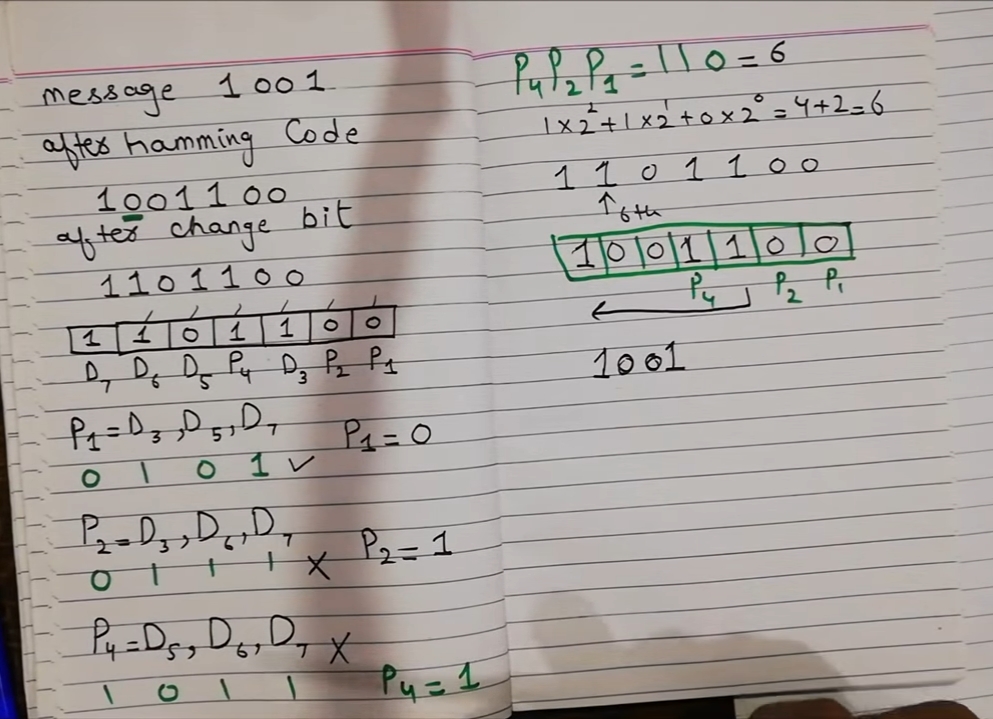 message 1001
after hamming Code
1001100
after change bit
1101100
1 1 0 1 1 0 0
D₇ D₆ D₅ P₄ D₃ P₂ P₁
P₁=D₃,D₅,D₇ P₁=0
0 1 0 1 ✓
P₂=D₃,D₆,D₇ P₂=1
0 1 1 1 ×
P₄=D₅,D₆,D₇ ×
1 0 1 1 P₄=1
P₄P₂P₁=110=6
1×2²+1×2¹+0×2⁰=4+2=6
1 1 0 1 1 0 0
↑6th
1 0 0 1 1 0 0
P₄ P₂ P₁
1001